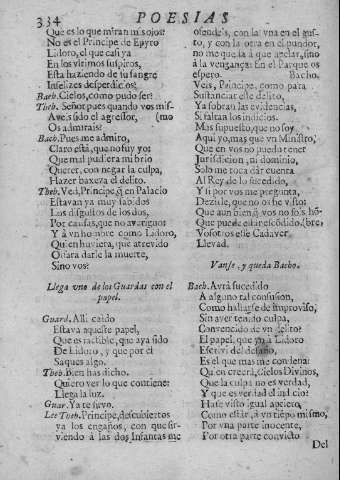 334 POESIAS
Que es lo que miran mis ojos?
No es el Principe de Epyro
Lidoro, el que casi ya
En los vltimos suspiros,
Esta haziendo de su sangre
Infelizes desperdicios?
Bach. Cielos, como pudo ser?
Theb. Señor pues quando vos mis-
Aveis sido el agressor, (mo
Os admirais?
Bach. Pues me admiro,
Claro està, que no fuy yo:
Que mal pudiera mi brio
Querer, con negar la culpa,
Hazer baxeza el delito.
Theb. Ved, Principe, q̃ en Palacio
Estavan ya muy sabidos
Los disgustos de los dos,
Por causas, que no averiguo:
Y à vn hombre como Lidoro,
Quien huviera, que atrevido
Osàra darle la muerte,
Sino vos?
Llega vno de los Guardas con el
papel.
Guard. Alli caido
Estava aqueste papel,
Que es factible, que aya sido
De Lidoro, y que por el
Saques algo.
Theb. Bien has dicho.
Quiero ver lo que contiene:
Llega la luz.
Guar. Ya te sirvo.
Lee Theb. Principe, descubiertos
ya los engaños, con que sir-
viendo à las dos Infantas me
ofendeis, con la vna en el gus-
to, y con la otra en el pundor,
no me queda à que apelar, sino
à la vengança: En el Parque os
espero. Bacho.
Veis, Principe, como para
Sustanciar este delito,
Ya sobran las evidencias,
Si faltan los indicios.
Mas supuesto, que no soy
Aqui yo, mas que vn Ministro,
Que en vos no puedo tener
Jurisdicion, ni dominio,
Solo me toca dàr cuenta
Al Rey de lo sucedido,
Y si por vos me pregunta,
Dezirle, que no os he visto:
Que aun bien, q̃ vos no sois hõ-
Que puede estar escõdido. (bre,
Vosotros esse Cadaver
Llevad.
Vanse, y queda Bacho.
Bach. Avrà sucedido
A alguno tal confusion,
Como hallarse de improviso,
Sin aver tenido culpa,
Convencido de vn delito?
El papel, que yo à Lidoro
Escrivi del desafio,
Es el que mas me condena:
Quien creerà, Cielos Divinos,
Que la culpa no es verdad,
Y que es verdad el indicio?
Hase visto igual aprieto,
Como estàr, à vn tiẽpo mismo,
Por vna parte inocente,
Por otra parte convicto
Del